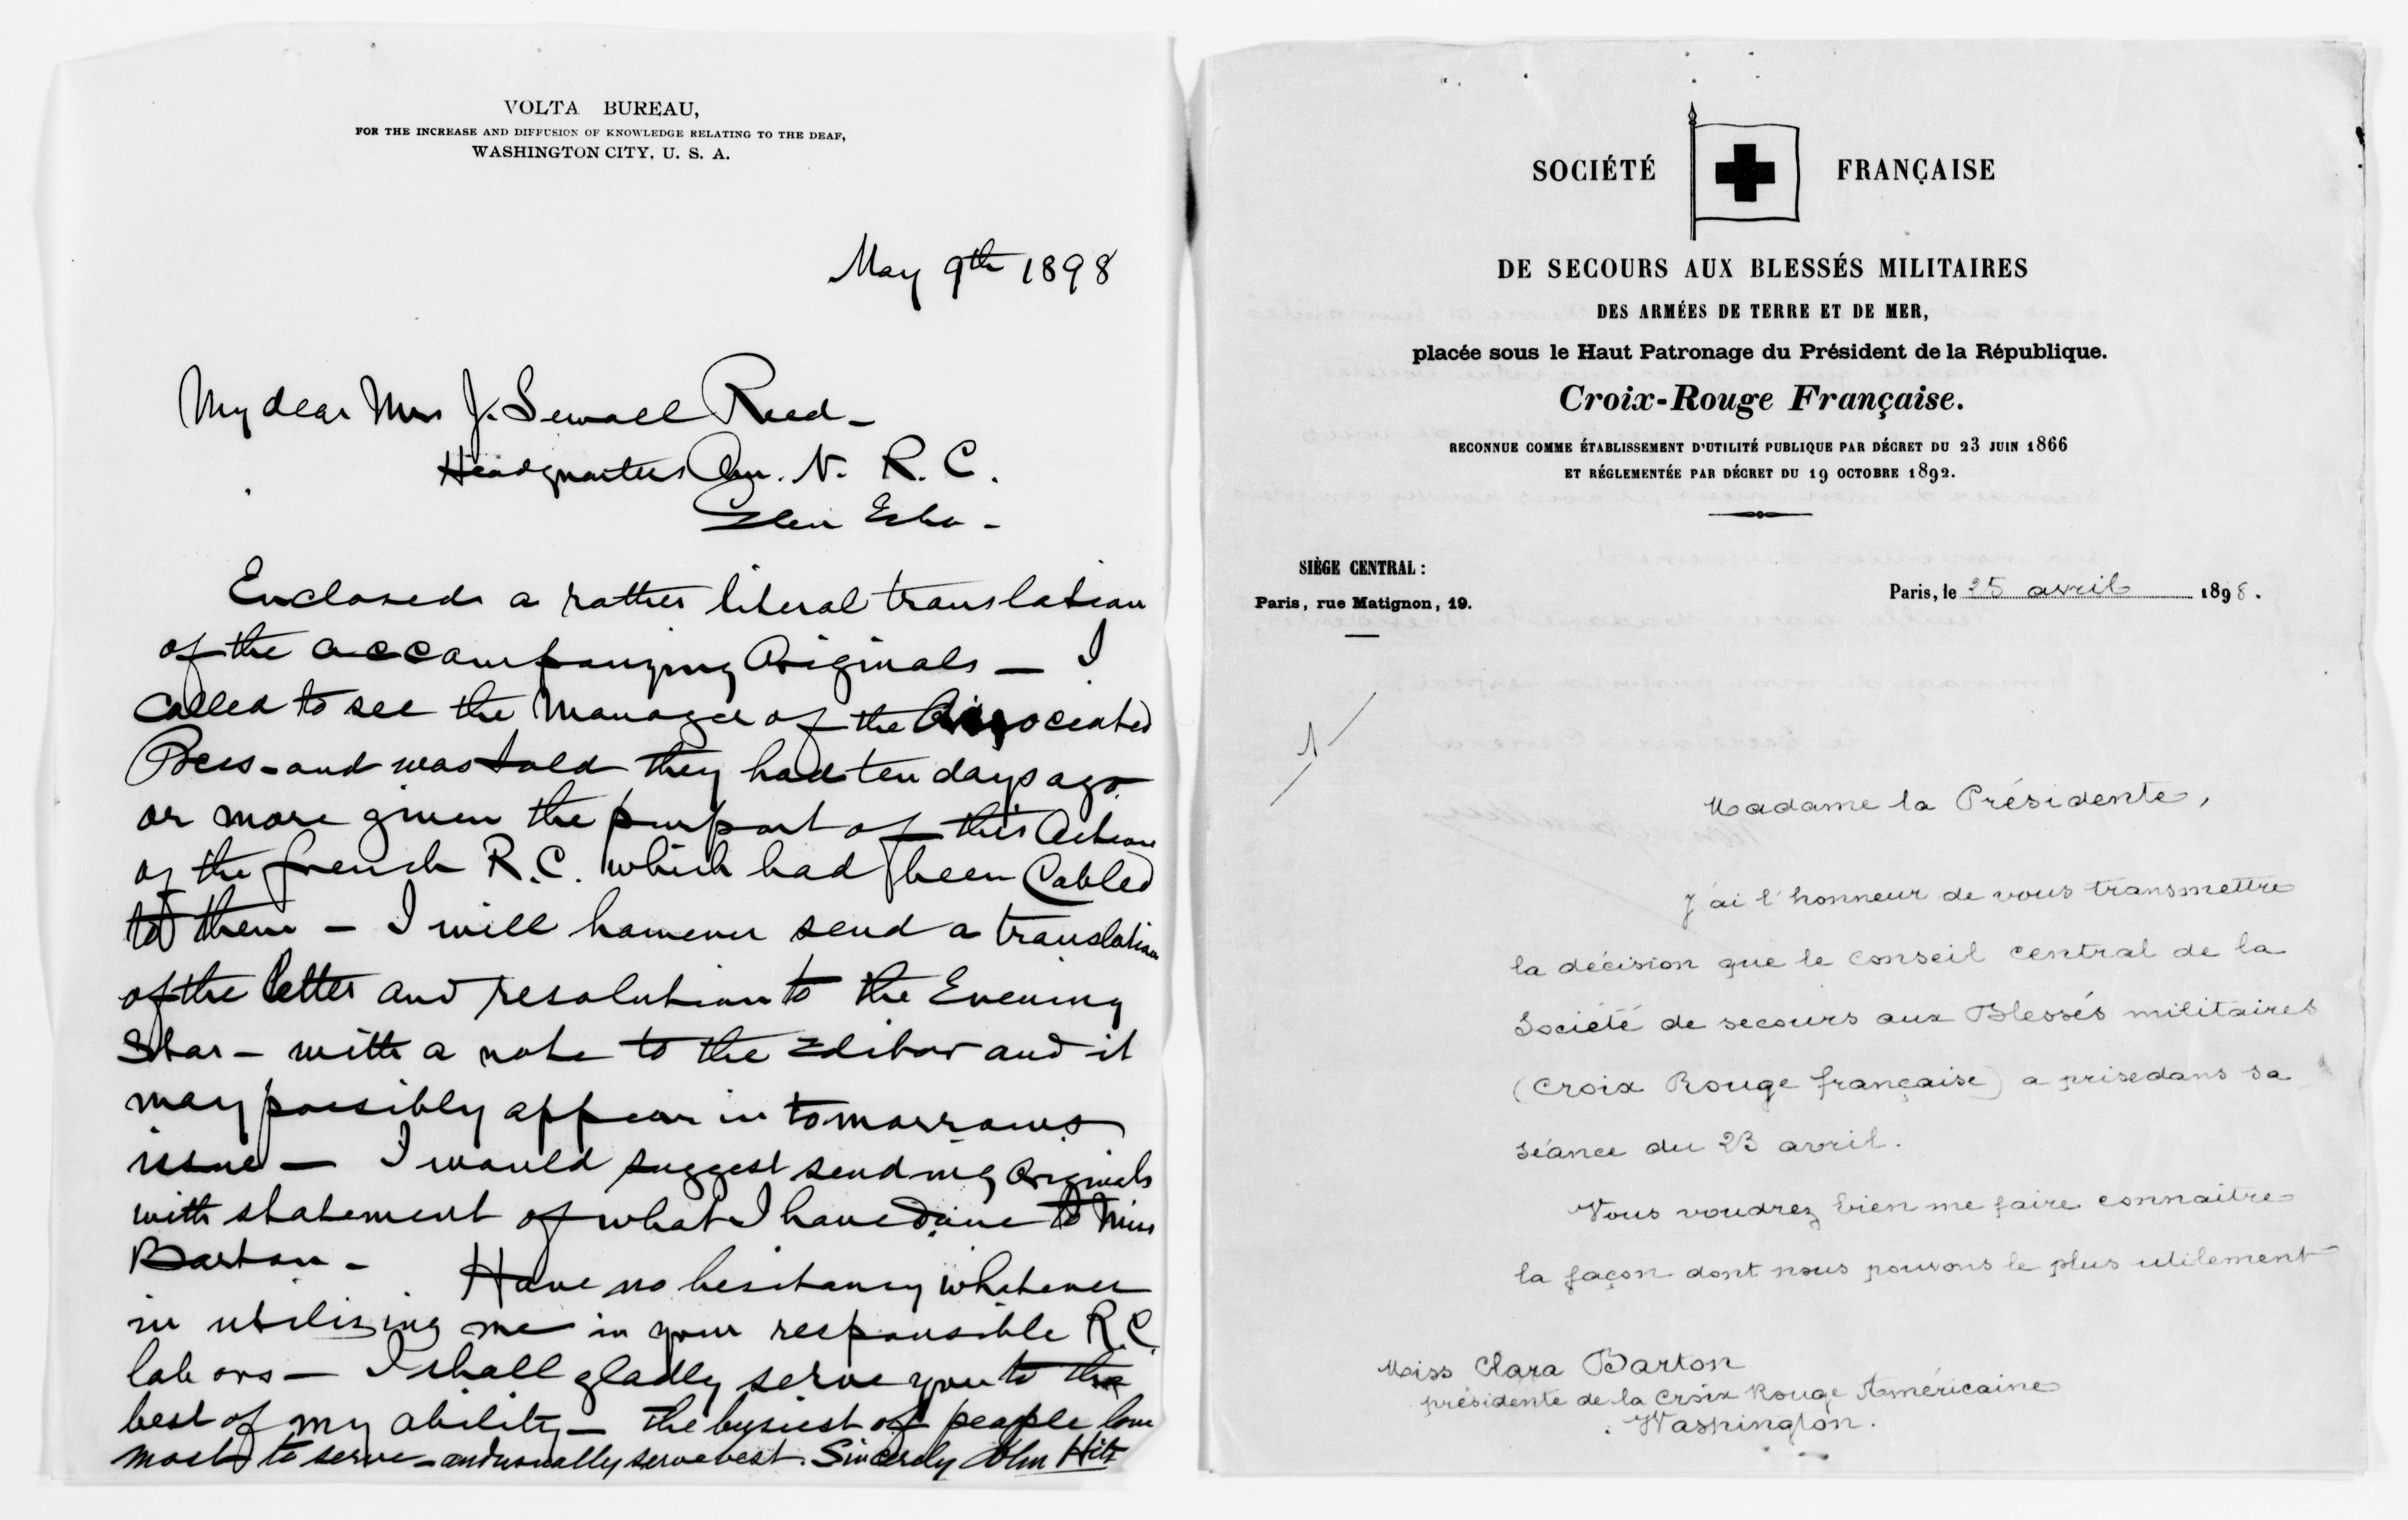 VOLTA BUREAU,
FOR THE INCREASE AND DIFFUSION OF KNOWLEDGE RELATING TO THE DEAF,
WASHINGTON CITY, U. S. A.
May 9th 1898
My dear Mrs J. Sewall Reed –
Headquarters Am. N. R. C.
Glen Echo –
Enclosed a rather literal translation
of the accompanying Originals — I
called to see the Manager of the Associated
Press – and was told they had ten days ago
or more given the purport of this Action
of the french R.C. which had been Cabled
to them – I will however send a translation
of the letter and resolution to the Evening
Star – with a note to the Editor and it
may possibly appear in tomorrows
issue — I would suggest sending Originals
with statement of what I have done to Miss
Barton – Have no hesitancy whatever
in utilizing me in your responsible R.C.
labors — I shall gladly serve you to the
best of my ability – the busiest of people love
most to serve – and usually serve best. Sincerely John Hitz
SOCIÉTÉ FRANÇAISE
DE SECOURS AUX BLESSÉS MILITAIRES
DES ARMÉES DE TERRE ET DE MER,
placée sous le Haut Patronage du Président de la République.
Croix-Rouge Française.
RECONNUE COMME ÉTABLISSEMENT D'UTILITÉ PUBLIQUE PAR DÉCRET DU 23 JUIN 1866
ET RÉGLEMENTÉE PAR DÉCRET DU 19 OCTOBRE 1892.
SIÈGE CENTRAL :
Paris, rue Matignon, 19.
Paris, le 25 avril 1898.
1
Madame la Présidente,
J'ai l'honneur de vous transmettre
la décision que le conseil central de la
Société de secours aux Blessés militaires
(Croix Rouge française) a prise dans sa
séance du 23 avril.
Vous voudrez bien me faire connaitre
la façon dont nous pouvons le plus utilement
Miss Clara Barton
présidente de la Croix Rouge Américaine
Washington.